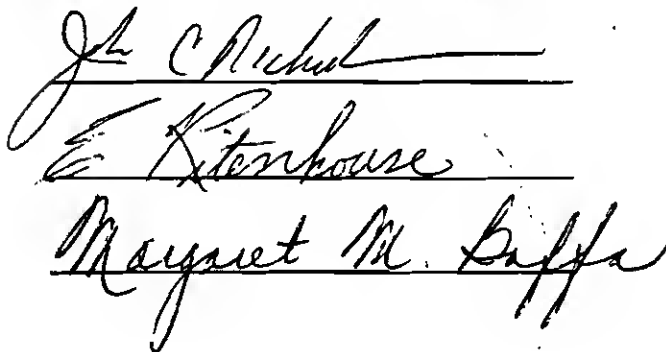 John C
E Ritenhouse
Margaret M. Gaffa